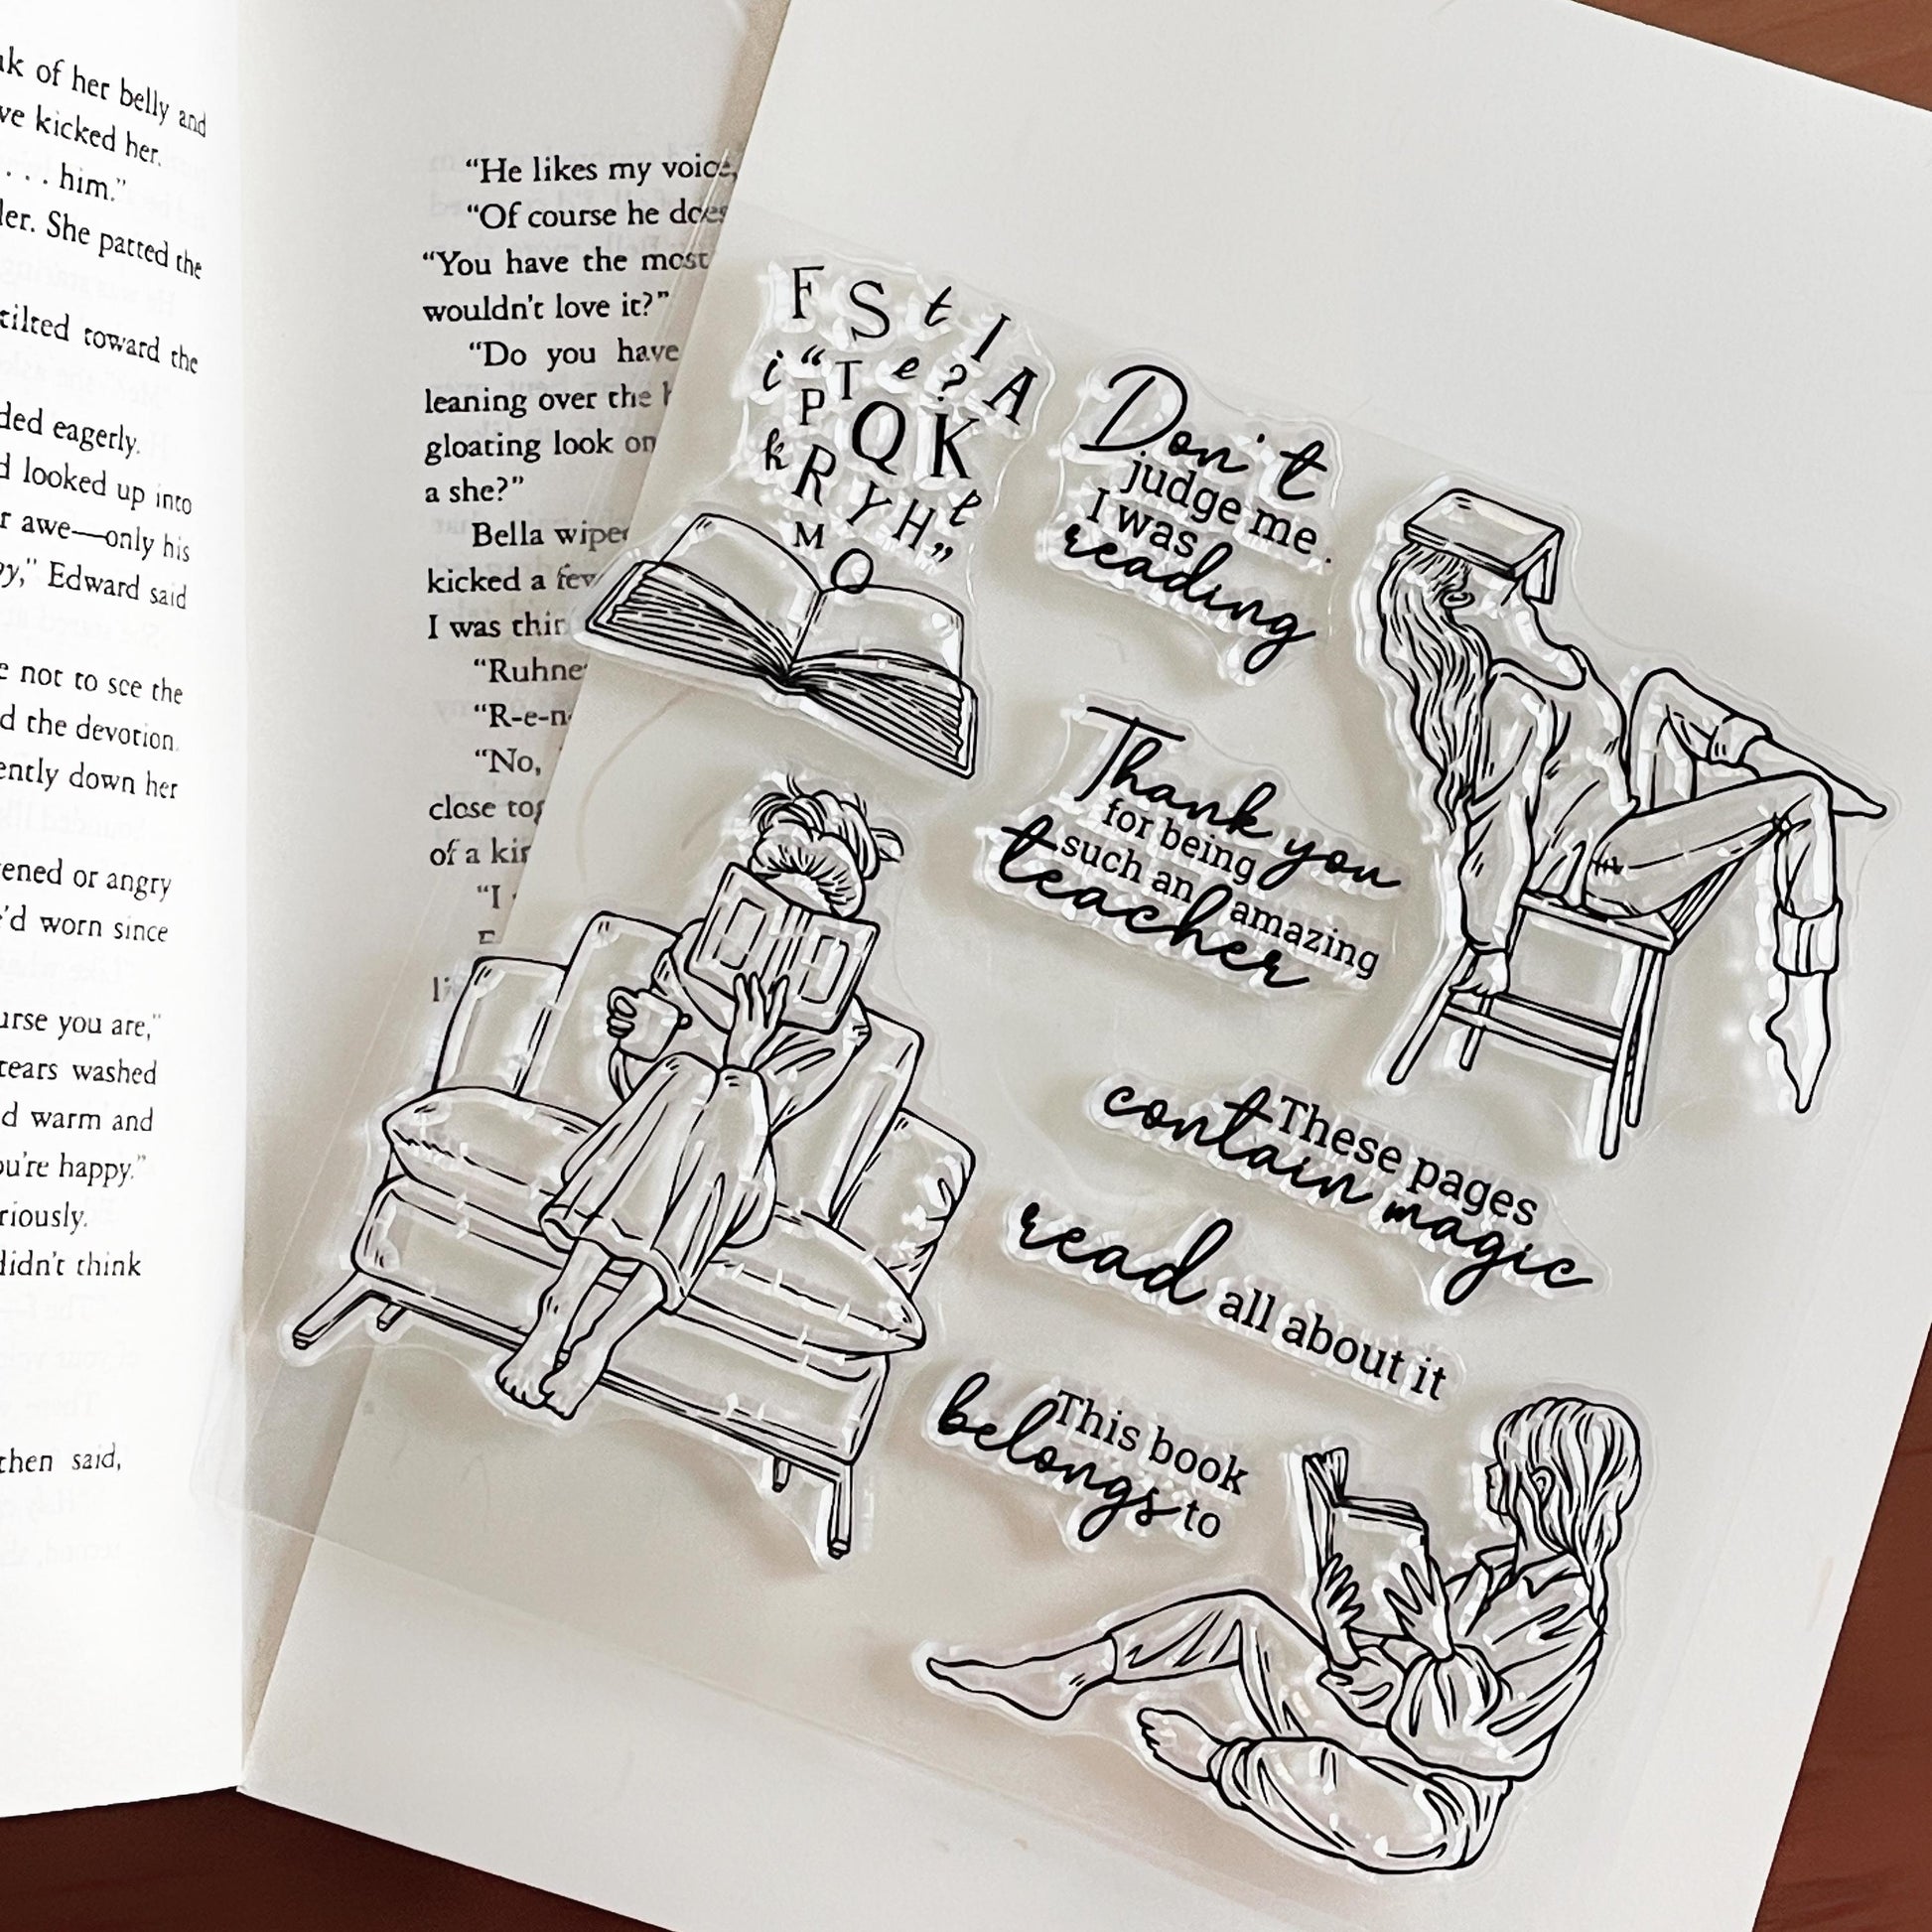 of her belly and
kicked her.
. . . him."
She patted the
tilted toward the
eagerly.
looked up into
awe—only his
Edward said
not to see the
the devotion.
down her
or angry
worn since
you are,"
tears washed
warm and
you're happy."
didn't think
then said,
"He likes my voice,
"Of course he does
"You have the most
wouldn't love it?"
"Do you have
leaning over the
gloating look on
a she?"
Bella wiped
kicked a few
I was
"R-e-n
"No,
close
of a
"I
F S t I
i " T e ? A
P Q K
k R Y H t "
M O
Don't
judge me.
I was
reading
Thank you
for being
such an amazing
teacher
These pages
contain magic
read all about it
This book
belongs to